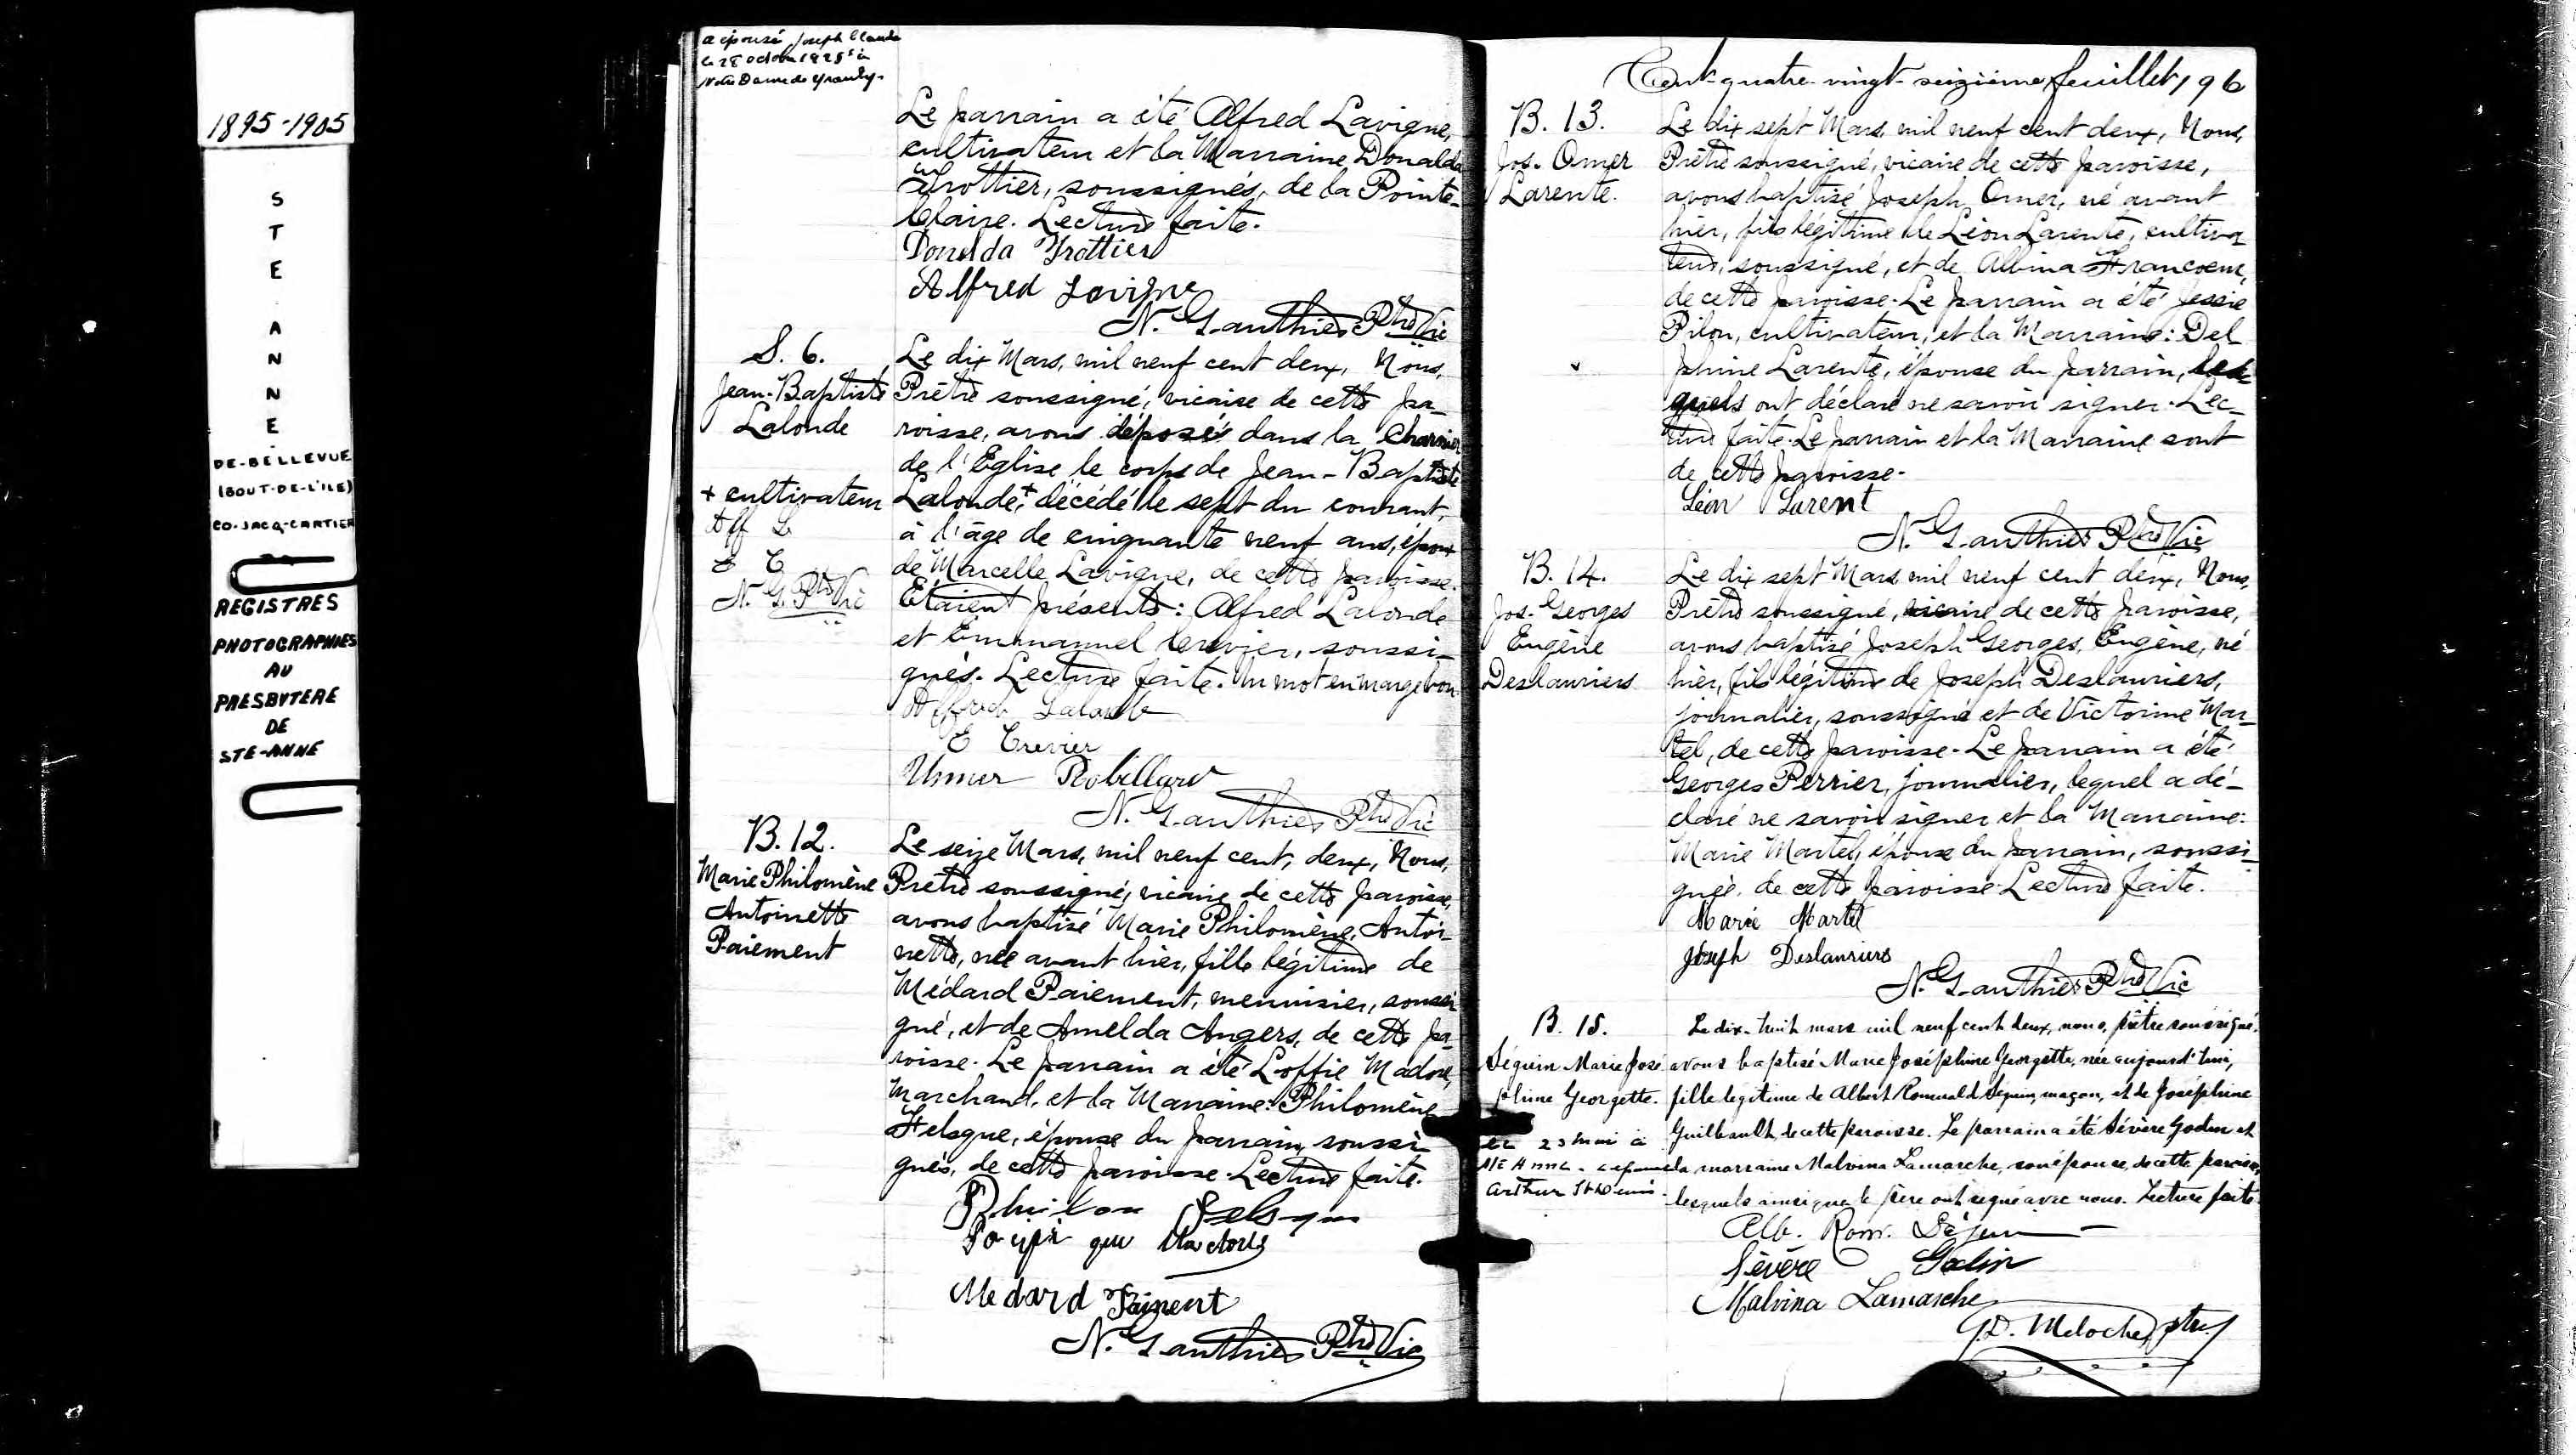 1895-1905
STE ANNE
DE-BELLEVUE
(BOUT-DE-L'ILE)
CO-JACQ-CARTIER
REGISTRES
PHOTOGRAPHIES
AU
PRESBYTERE
DE
STE-ANNE
a épousé Joseph
le 28 octobre 1925 à
Notre Dame de
Le parrain a été Alfred Lavigne,
cultivateur et la Marraine Donalda
Trottier, soussignés, de la Pointe-
Claire. Lecture faite.
Donalda Trottier
Alfred Lavigne
N. Gauthier Ptre Vic
S. 6.
Jean-Baptiste
Lalonde
+ cultivateur
Aff L
E C
N. G. Ptre Vic
Le dix Mars, mil neuf cent deux, Nous,
Prêtre soussigné, vicaire de cette pa-
roisse, avons déposé dans la Charnier
de l'Eglise le corps de Jean-Baptiste
Lalonde,+ décédé le sept du courant,
à l'âge de cinquante neuf ans, époux
de Marcelle Lavigne, de cette paroisse.
Etaient présents: Alfred Lalonde
et Emmanuel Crevier, soussi-
gnés. Lecture faite. Un mot en marge bon
Alfred Lalonde
E Crevier
Robillard
N. Gauthier Ptre Vic
B. 12.
Marie Philomène
Antoinette
Paiement
Le seize Mars, mil neuf cent, deux, Nous,
Prêtre soussigné, vicaire de cette paroisse,
avons baptisé Marie Philomène, Antoi-
nette, née avant hier, fille légitime de
Médard Paiement, menuisier, soussi-
gné, et de Amelda Angers, de cette pa-
roisse. Le parrain a été Madore,
Marchand, et la Marraine: Philomène
épouse du parrain, soussi-
gnés, de cette paroisse. Lecture faite.
Medard Paiment
N. Gauthier Ptre Vic
Cent-quatre-vingt-seizième feuillet 196
B. 13.
Jos. Omer
Larente.
Le dix sept Mars mil neuf cent deux, Nous,
Prêtre soussigné, vicaire de cette paroisse,
avons baptisé Joseph Omer, né avant
hier, fils légitime de Léon Larente, cultiva-
teur, soussigné, et de Albina Francoeur,
de cette paroisse. Le parrain a été Jessie
Pilon, cultivateur, et la Marraine: Del
phine Larente, épouse du parrain, les-
quels ont déclaré ne savoir signer. Lec-
ture faite. Le parrain et la Marraine sont
de cette paroisse.
Léon Larent
N. Gauthier Ptre Vic
B. 14.
Jos. Georges
Eugène
Deslauriers
Le dix sept Mars mil neuf cent deux, Nous,
Prêtre soussigné, vicaire de cette paroisse,
avons baptisé Joseph Georges, Eugène, né
hier, fils légitime de Joseph Deslauriers,
journalier, soussigné et de Victorine Mar-
tel, de cette paroisse. Le parrain a été
Georges Perrier, journalier, lequel a dé-
claré ne savoir signer et la Marraine:
Marie Martel, épouse du parrain, soussi-
gnée, de cette paroisse. Lecture faite.
Marie Martel
Joseph Deslauriers
N. Gauthier Ptre Vic
B. 15.
Séguin Marie José-
phine Georgette.
23 mai à
Ste Anne. a épousé
Arthur St Denis.
Le dix-huit mars mil neuf cent deux, nous, prêtre soussigné,
avons baptisé Marie Joséphine Georgette, née aujourd'hui,
fille légitime de Albert Romuald Séguin, maçon, et de Joséphine
Guilbault, de cette paroisse. Le parrain a été Sévère Godin et
la marraine Malvina Lamarche, son épouse, de cette paroisse,
lesquels ainsi que le père ont signé avec nous. Lecture faite.
Alb. Rom. Séguin
Sévère Godin
Malvina Lamarche
G.D. Meloche, ptre